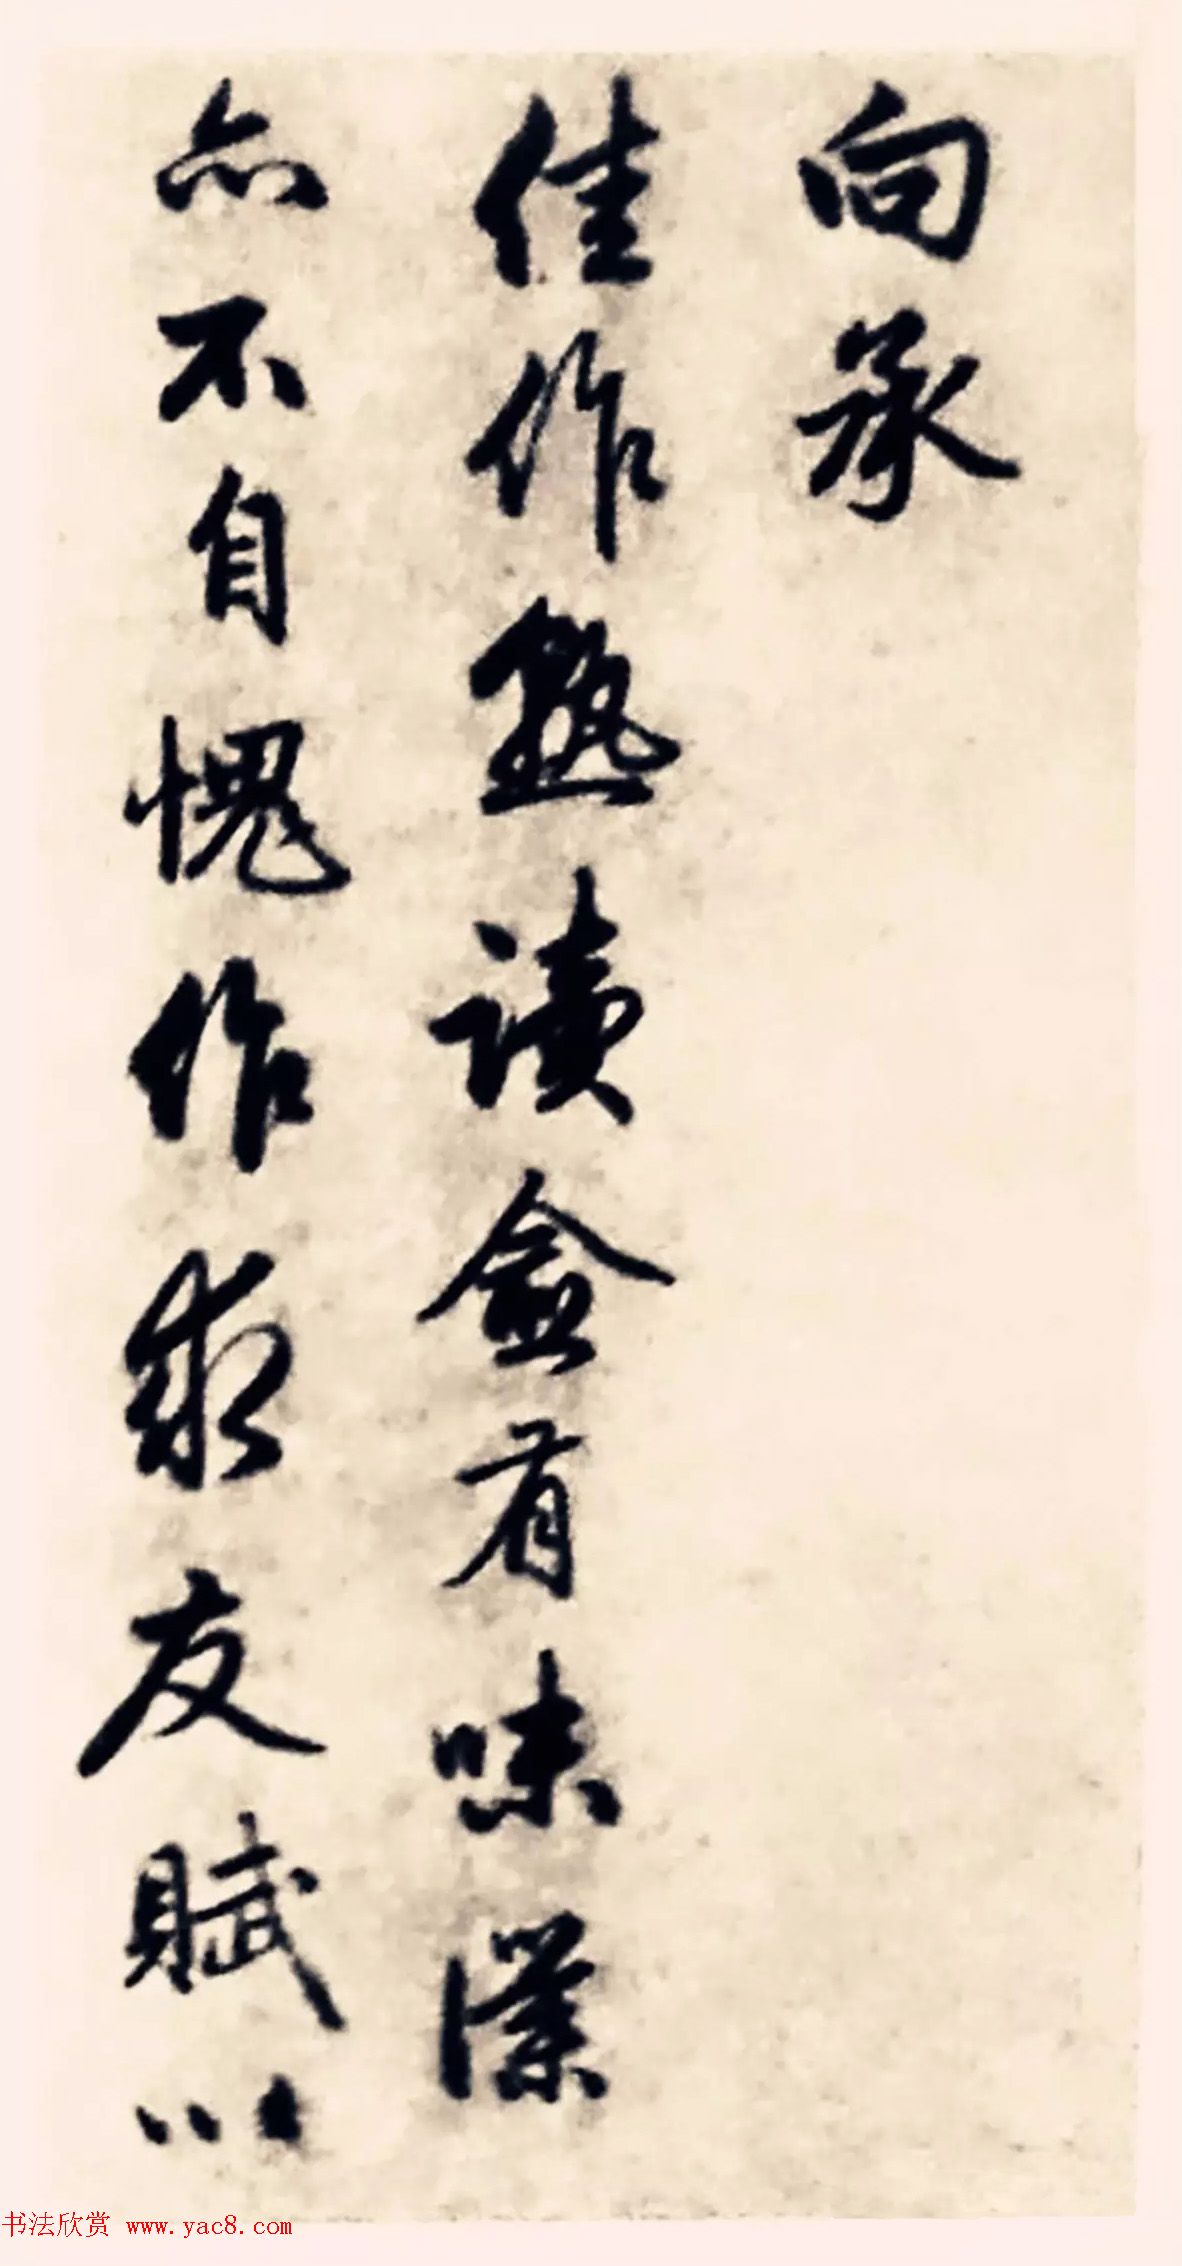 向承
佳作熟读盒有味漢
亦不自愧作求友賦以
书法欣赏 www.yac8.com